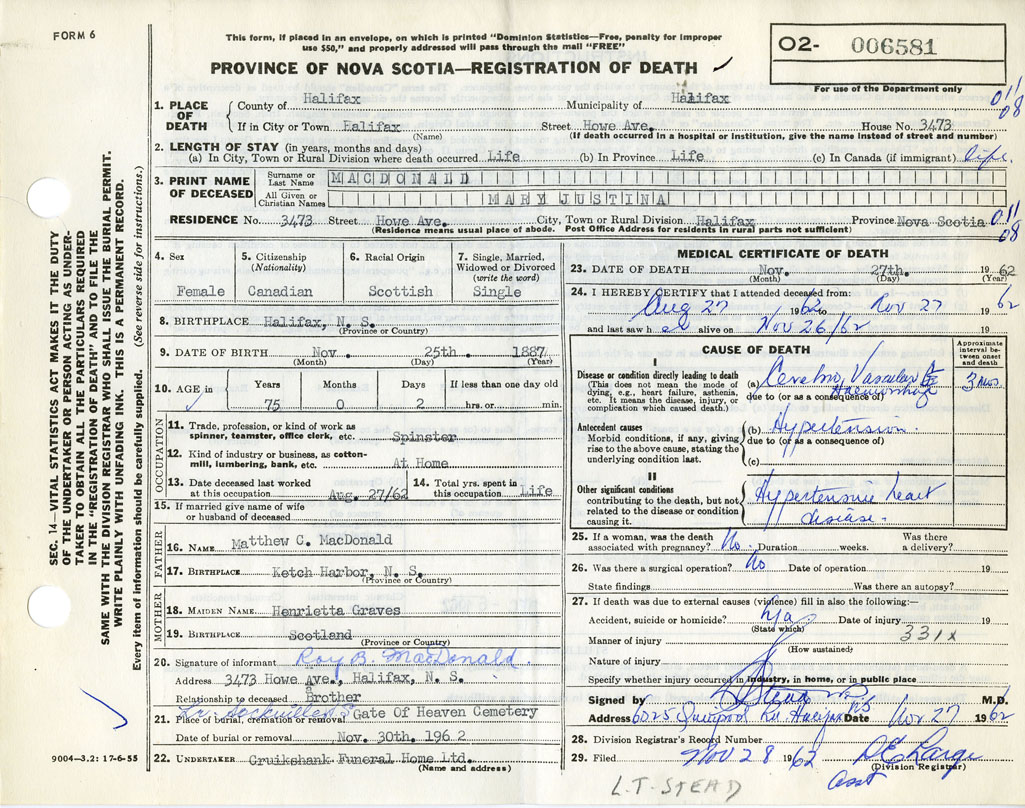 FORM 6
This form, if placed in an envelope, on which is printed "Dominion Statistics—Free, penalty for improper
use $50," and properly addressed will pass through the mail "FREE"
PROVINCE OF NOVA SCOTIA—REGISTRATION OF DEATH
02- 006581
For use of the Department only
011
08
1. PLACE OF DEATH County of Halifax Municipality of Halifax
If in City or Town Halifax Street Howe Ave. House No. 3473
(Name) (If death occurred in a hospital or institution, give the name instead of street and number)
2. LENGTH OF STAY (in years, months and days)
(a) In City, Town or Rural Division where death occurred Life (b) In Province Life (c) In Canada (if immigrant) life.
3. PRINT NAME OF DECEASED Surname or Last Name MACDONALD
All Given or Christian Names MARY JUSTINA
RESIDENCE No. 3473 Street Howe Ave. City, Town or Rural Division Halifax Province Nova Scotia
(Residence means usual place of abode. Post Office Address for residents in rural parts not sufficient)
011
08
4. Sex Female
5. Citizenship (Nationality) Canadian
6. Racial Origin Scottish
7. Single, Married, Widowed or Divorced (write the word) Single
8. BIRTHPLACE Halifax, N. S.
(Province or Country)
9. DATE OF BIRTH Nov. 25th. 1887
(Month) (Day) (Year)
10. AGE in Years Months Days If less than one day old
75 0 2 hrs. or min.
OCCUPATION
11. Trade, profession, or kind of work as
spinner, teamster, office clerk, etc. Spinster
12. Kind of industry or business, as cotton-
mill, lumbering, bank, etc. At Home
13. Date deceased last worked at this occupation Aug. 27/62
14. Total yrs. spent in this occupation Life
15. If married give name of wife
or husband of deceased
FATHER
16. NAME Matthew C. MacDonald
17. BIRTHPLACE Ketch Harbor, N. S.
(Province or Country)
MOTHER
18. MAIDEN NAME Henrietta Graves
19. BIRTHPLACE Scotland
(Province or Country)
20. Signature of informant Roy B. MacDonald.
Address 3473 Howe Ave., Halifax, N. S.
Relationship to deceased Brother
21. Place of burial, cremation or removal Gate Of Heaven Cemetery
Date of burial or removal Nov. 30th. 1962
22. UNDERTAKER Cruikshank Funeral Home Ltd.
(Name and address)
MEDICAL CERTIFICATE OF DEATH
23. DATE OF DEATH Nov. 27th. 1962
(Month) (Day) (Year)
24. I HEREBY CERTIFY that I attended deceased from:
Aug 27 1962 to Nov 27 19 62
and last saw her alive on Nov 26/62 19
CAUSE OF DEATH
Approximate interval between onset and death
I
Disease or condition directly leading to death
(This does not mean the mode of
dying, e.g., heart failure, asthenia,
etc. It means the disease, injury, or
complication which caused death.)
(a) Cerebro Vascular Haemorrhage
due to (or as a consequence of)
3 mos
Antecedent causes
Morbid conditions, if any, giving
rise to the above cause, stating the
underlying condition last.
(b) Hypertension.
due to (or as a consequence of)
(c)
II
Other significant conditions
contributing to the death, but not
related to the disease or condition
causing it.
Hypertensive heart
disease.
25. If a woman, was the death
associated with pregnancy? No. Duration weeks. Was there a delivery?
26. Was there a surgical operation? No Date of operation 19
State findings Was there an autopsy?
27. If death was due to external causes (violence) fill in also the following:—
Accident, suicide or homicide? Date of injury 19
(State which)
Manner of injury 331x
(How sustained)
Nature of injury
Specify whether injury occurred in industry, in home, or in public place
Signed by Stead M.D.
Address 6025 Quinpool Rd. Halifax NS Date Nov 27 1962
28. Division Registrar's Record Number
29. Filed Nov 28 1962
(Division Registrar)
asst
L.T. STEAD
SEC. 14—VITAL STATISTICS ACT MAKES IT THE DUTY
OF THE UNDERTAKER OR PERSON ACTING AS UNDER-
TAKER TO OBTAIN ALL THE PARTICULARS REQUIRED
IN THE "REGISTRATION OF DEATH" AND TO FILE THE
SAME WITH THE DIVISION REGISTRAR WHO SHALL ISSUE THE BURIAL PERMIT.
WRITE PLAINLY WITH UNFADING INK. THIS IS A PERMANENT RECORD.
Every item of information should be carefully supplied. (See reverse side for instructions.)
9004—3.2: 17-6-55